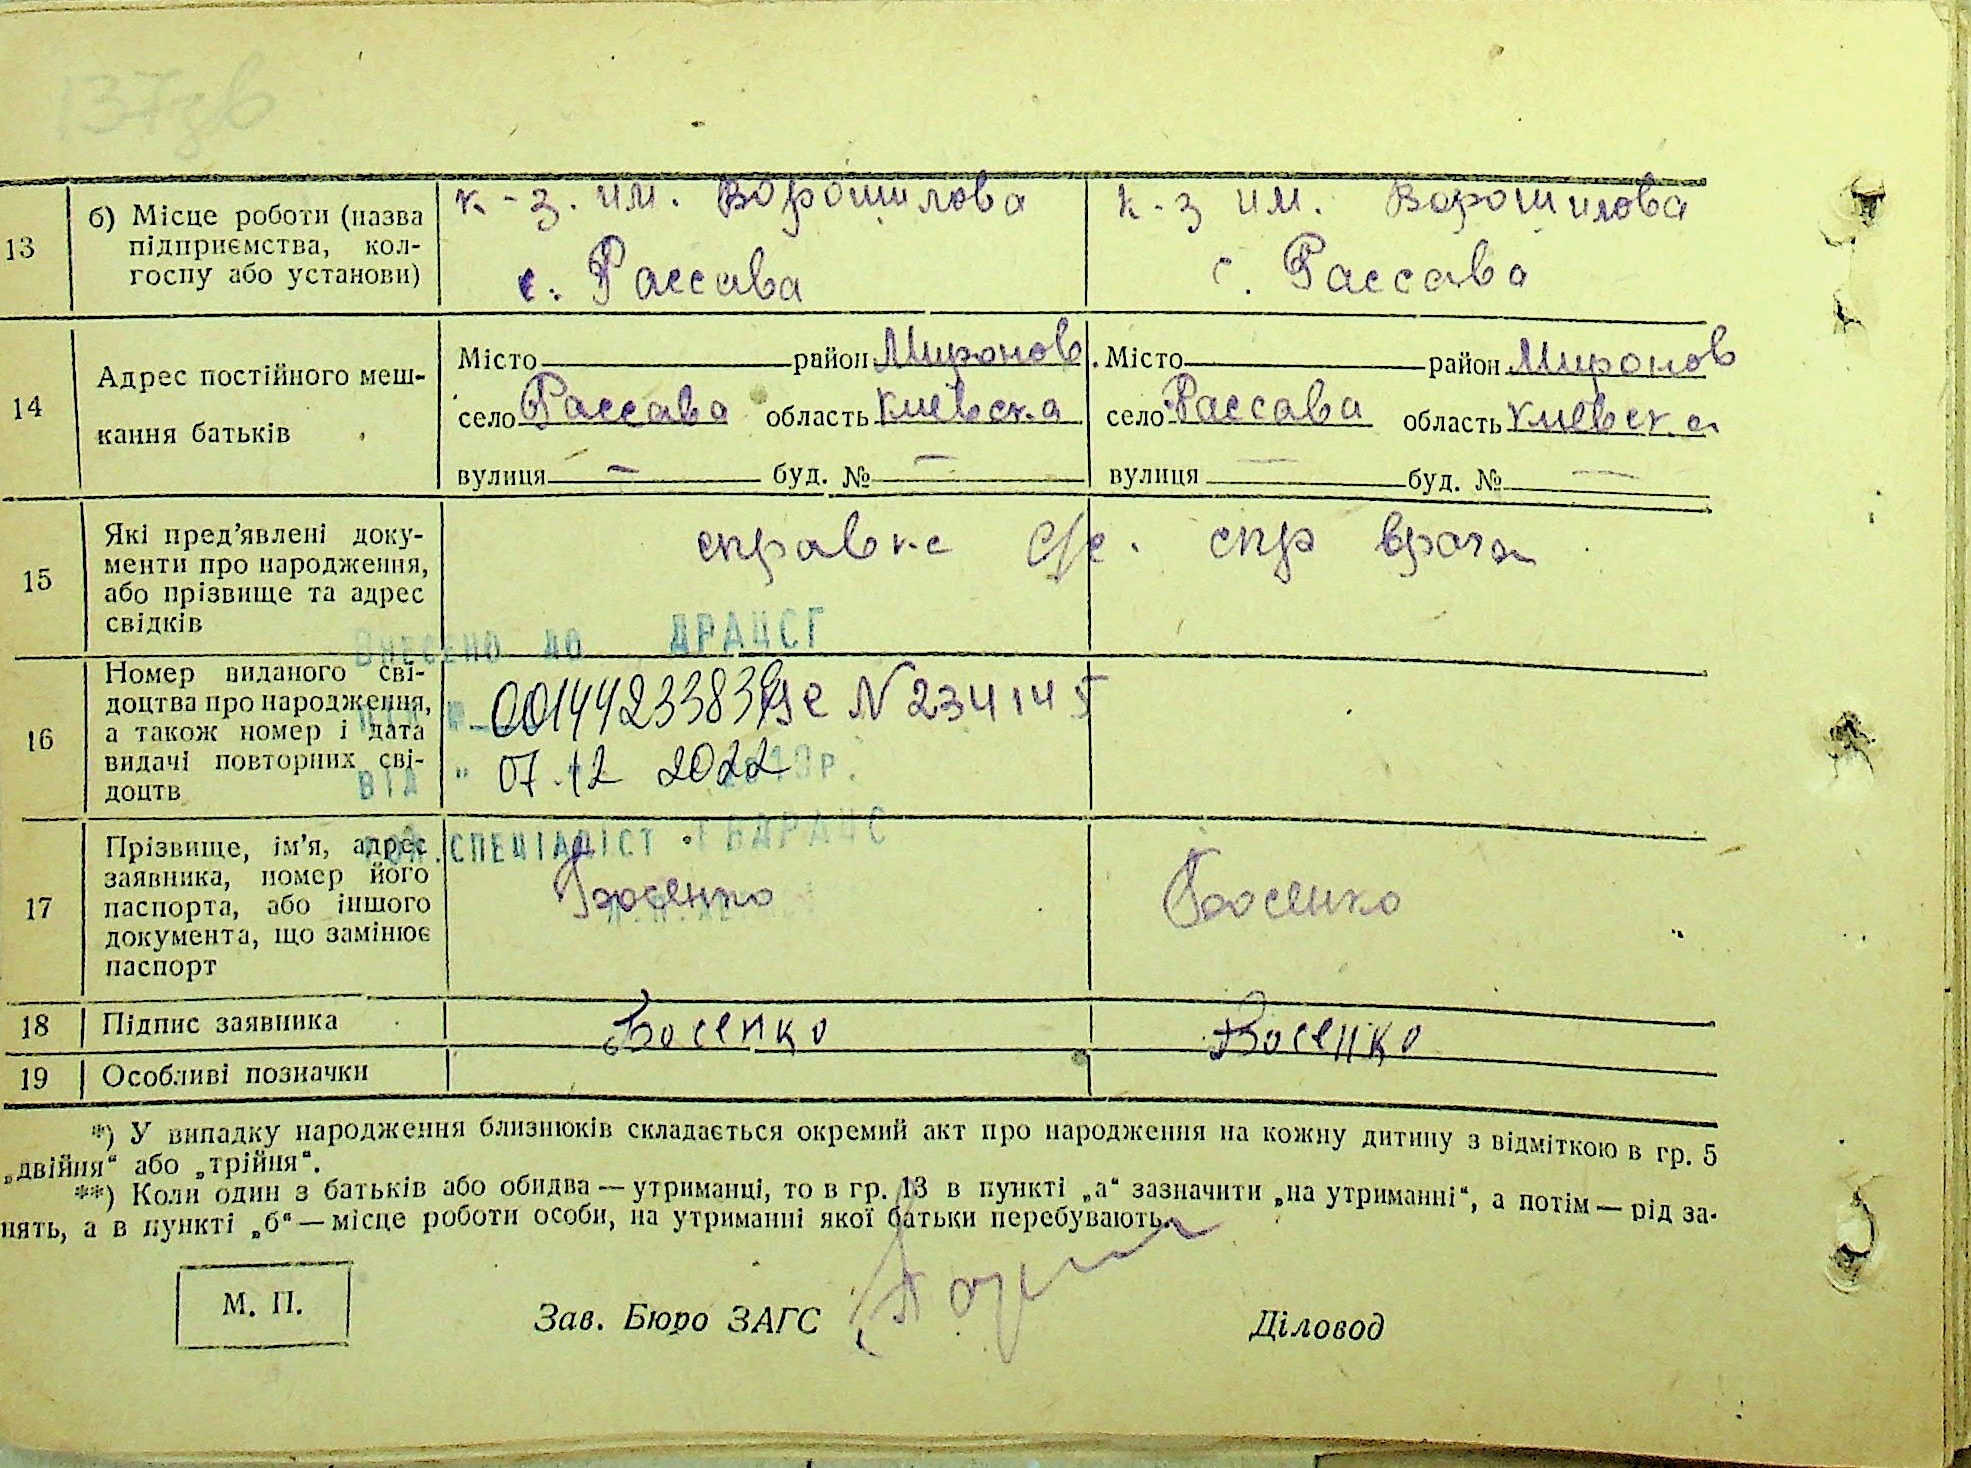 137зв
13 б) Місце роботи (назва підприємства, кол-
госпу або установи)
к-з. им. Ворошилова
с. Рассава
к-з им. Ворошилова
с. Рассава
14 Адрес постійного меш-
кання батьків
Місто район Миронов.
село Рассава область Киевска
вулиця — буд. № —
Місто район Миронов
село Рассава область Киевска
вулиця — буд. № —
15 Які пред’явлені доку-
менти про народження,
або прізвище та адрес
свідків
справке с/с. спр врача
ВНЕСЕНО ДО ДРАЦСГ
16 Номер виданого сві-
доцтва про народження,
а також номер і дата
видачі повторних сві-
доцтв
00144233839 N 234145
ВІД " 07.12 2022 р.
СПЕЦІАЛІСТ
17 Прізвище, ім’я, адрес
заявника, номер його
паспорта, або іншого
документа, що замінює
паспорт
Босенко
Босенко
18 Підпис заявника Босенко Босенко
19 Особливі позначки
*) У випадку народження близнюків складається окремий акт про народження на кожну дитину з відміткою в гр. 5
„двійня“ або „трійня“.
**) Коли один з батьків або обидва — утриманці, то в гр. 13 в пункті „а“ зазначити „на утриманні“, а потім — рід за-
нять, а в пункті „б“ — місце роботи особи, на утриманні якої батьки перебувають.
М. П. Зав. Бюро ЗАГС Діловод